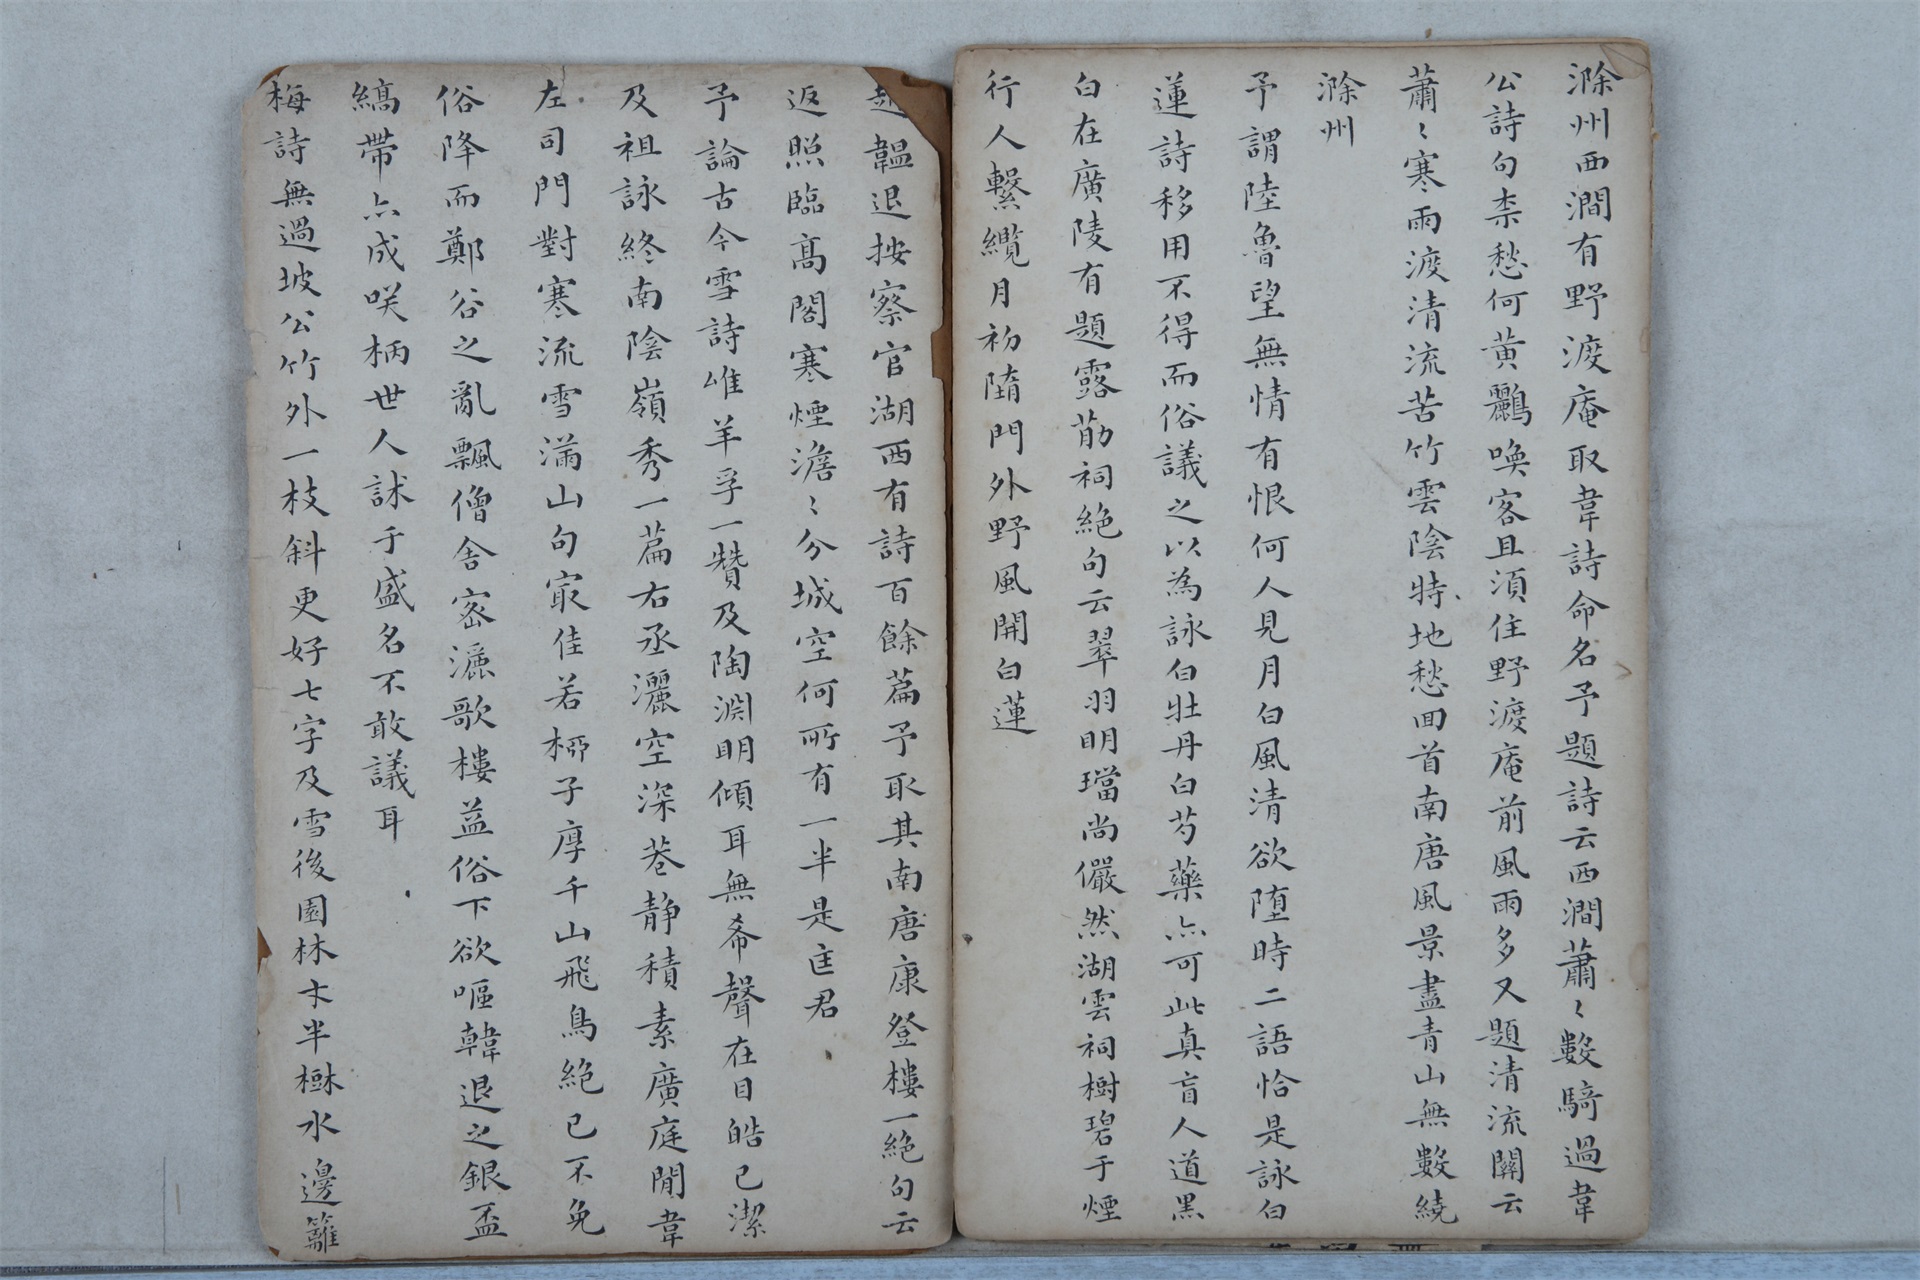 滁州西澗有野渡庵取韋詩命名予題詩云西澗蕭〻數騎過韋
公詩句柰愁何黃鸝喚客且須住野渡庵前風雨多又題清流關云
蕭〻寒雨渡清流苦竹雲陰特地愁回首南唐風景盡青山無數繞
滁州
予謂陸魯望無情有恨何人見月白風清欲墮時二語恰是詠白
蓮詩移用不得而俗議之以為詠白牡丹白芍藥亦可此真盲人道黑
白在廣陵有題露筋祠絕句云翠羽明璫尚儼然湖雲祠樹碧于煙
行人繫纜月初墮門外野風開白蓮
趙韞退按察官湖西有詩百餘篇予取其南唐康登樓一絕句云
返照臨高閣寒煙澹〻分城空何所有一半是匡君
予論古今雪詩惟羊孚一贊及陶淵明傾耳無希聲在目皓已潔
及祖詠終南陰嶺秀一篇右丞灑空深巷靜積素廣庭閒韋
左司門對寒流雪滿山句冣佳若柳子厚千山飛鳥絕已不免
俗降而鄭谷之亂飄僧舍密灑歌樓益俗下欲嘔韓退之銀盃
縞帶亦成咲柄世人訹于盛名不敢議耳
梅詩無過坡公竹外一枝斜更好七字及雪後園林才半樹水邊籬